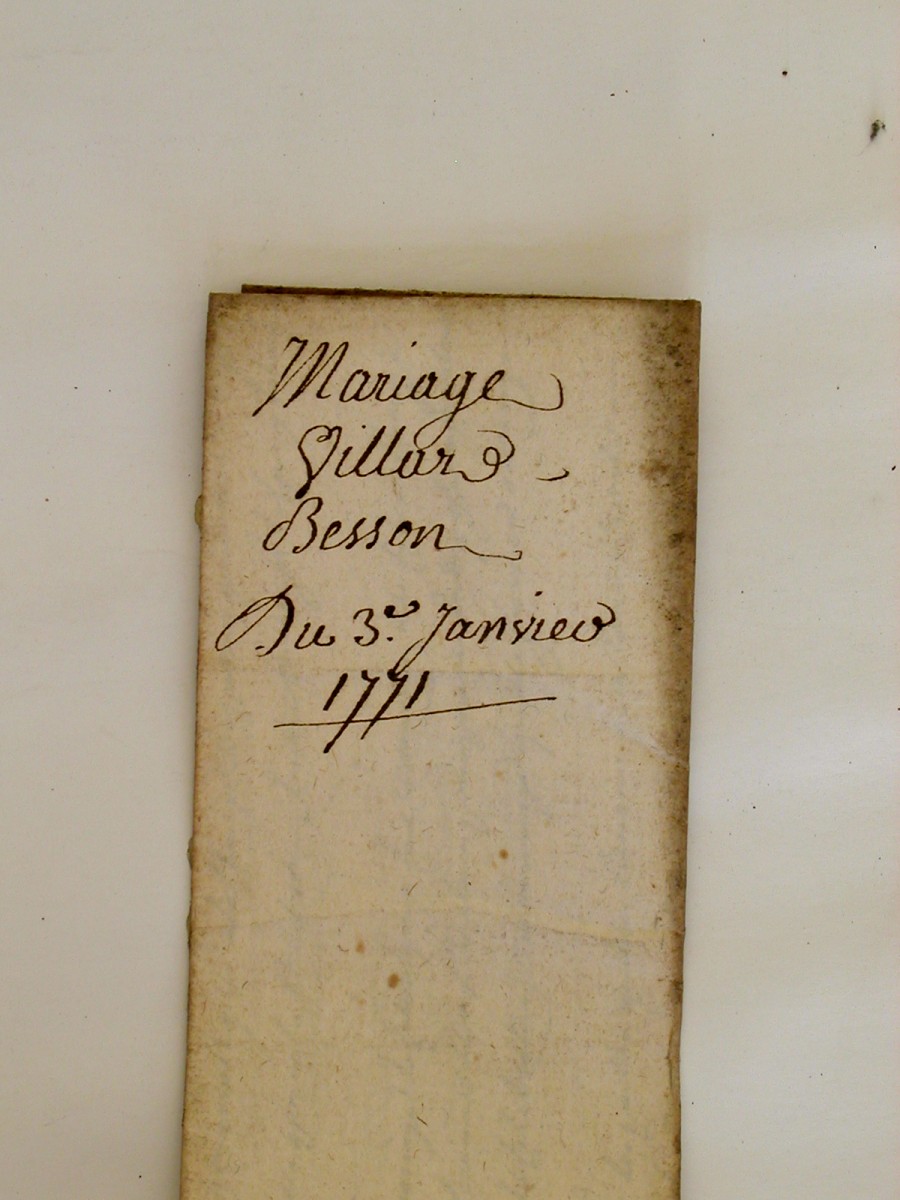 Mariage
Villard
Besson
Du 3.e Janvier
1771